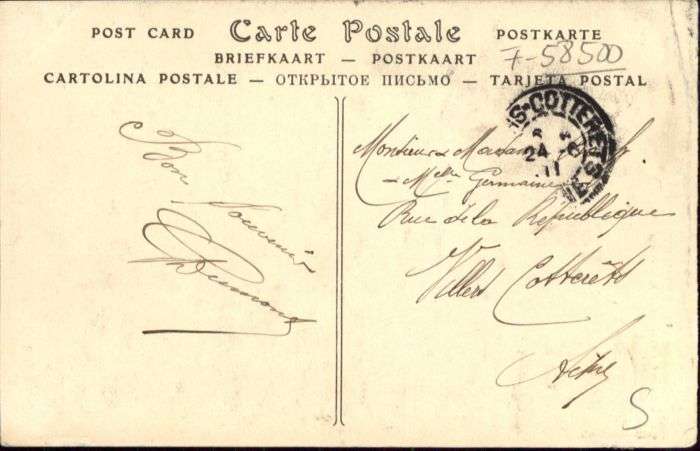 POST CARD Carte Postale POSTKARTE
BRIEFKAART — POSTKAART
CARTOLINA POSTALE — ОТКРЫТОЕ ПИСЬМО — TARJETA POSTAL
7-58500
S-COTTERETS
24
11
Bon Souvenir
Monsieur & Madame
& Melle Germaine
Rue de la République
Villers Cotterêts
Aisne
S